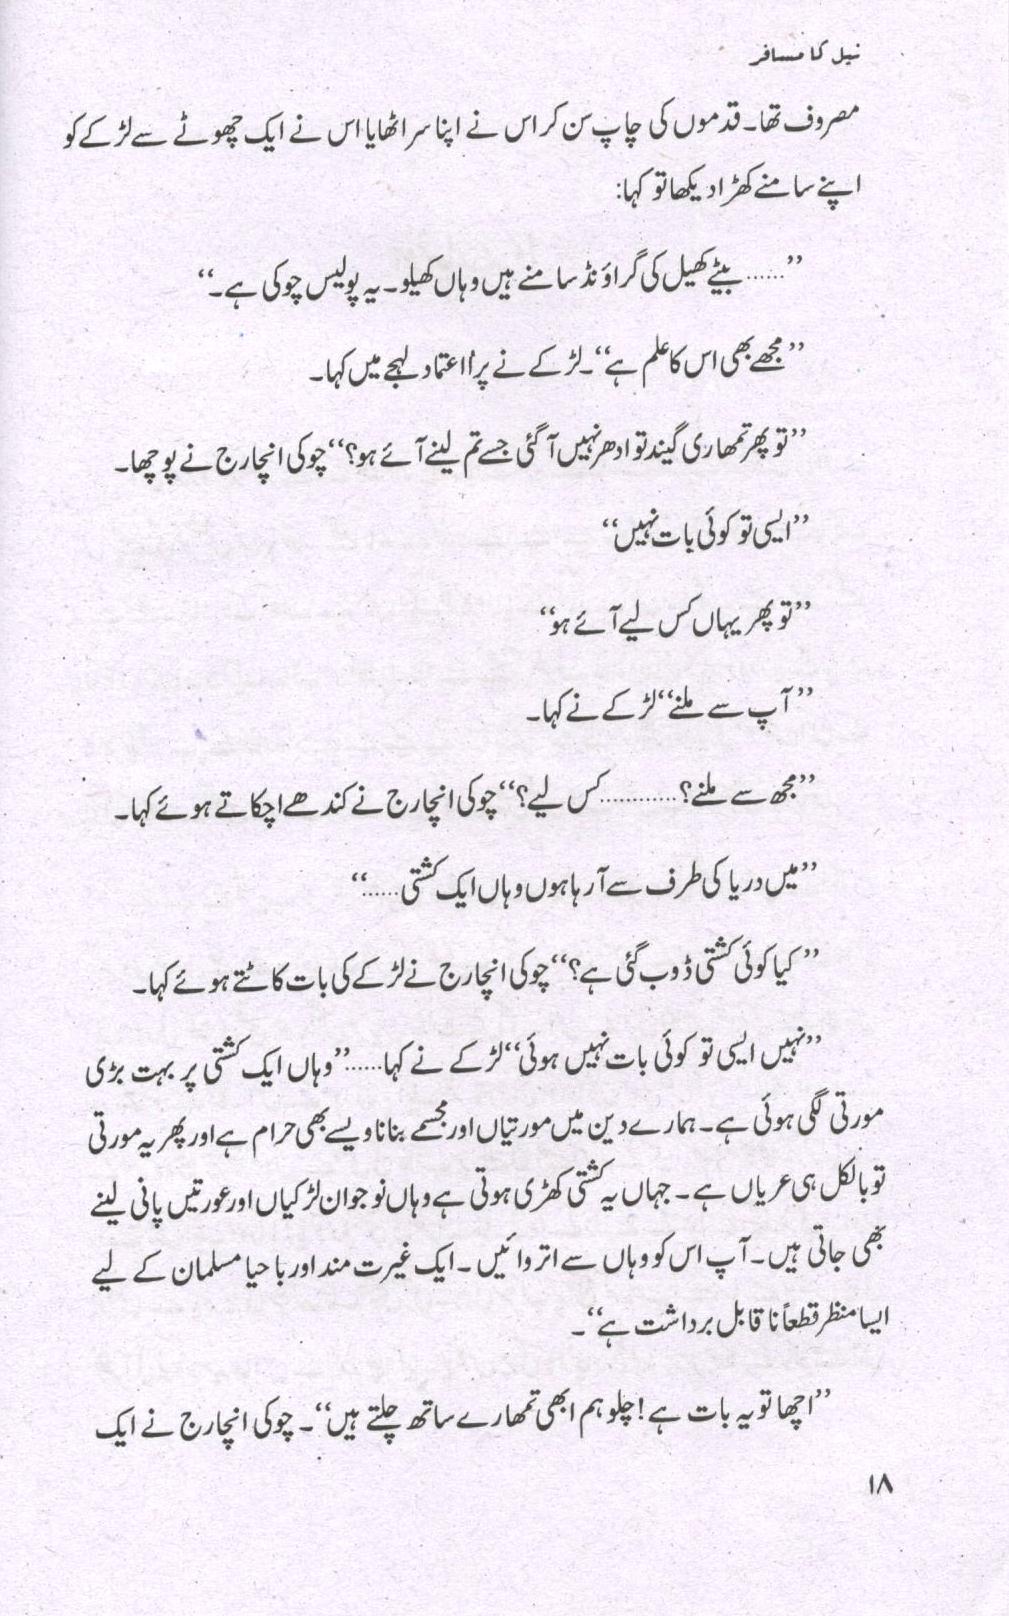 نیل کا مسافر
مصروف تھا۔ قدموں کی چاپ سن کر اس نے اپنا سر اٹھایا اس نے ایک چھوٹے سے لڑکے کو
اپنے سامنے کھڑا دیکھا تو کہا:
’’...... بیٹے کھیل کی گراؤنڈ سامنے ہیں وہاں کھیلو۔ یہ پولیس چوکی ہے۔‘‘
’’مجھے بھی اس کا علم ہے‘‘۔ لڑکے نے پرُ اعتماد لہجے میں کہا۔
’’تو پھر تمھاری گیند تو ادھر نہیں آ گئی جسے تم لینے آئے ہو؟‘‘ چوکی انچارج نے پوچھا۔
’’ایسی تو کوئی بات نہیں‘‘
’’تو پھر یہاں کس لیے آئے ہو‘‘
’’آپ سے ملنے‘‘ لڑکے نے کہا۔
’’مجھ سے ملنے؟ ............ کس لیے؟‘‘ چوکی انچارج نے کندھے اچکاتے ہوئے کہا۔
’’میں دریا کی طرف سے آ رہا ہوں وہاں ایک کشتی ......‘‘
’’کیا کوئی کشتی ڈوب گئی ہے؟‘‘ چوکی انچارج نے لڑکے کی بات کاٹتے ہوئے کہا۔
’’نہیں ایسی تو کوئی بات نہیں ہوئی‘‘ لڑکے نے کہا...... ’’وہاں ایک کشتی پر بہت بڑی
مورتی لگی ہوئی ہے۔ ہمارے دین میں مورتیاں اور مجسمے بنانا ویسے بھی حرام ہے اور پھر یہ مورتی
تو بالکل ہی عریاں ہے۔ جہاں یہ کشتی کھڑی ہوتی ہے وہاں نوجوان لڑکیاں اور عورتیں پانی لینے
بھی جاتی ہیں۔ آپ اس کو وہاں سے اتروائیں۔ ایک غیرت مند اور باحیا مسلمان کے لیے
ایسا منظر قطعاً نا قابل برداشت ہے‘‘۔
’’اچھا تو یہ بات ہے! چلو ہم ابھی تمھارے ساتھ چلتے ہیں‘‘۔ چوکی انچارج نے ایک
۱۸